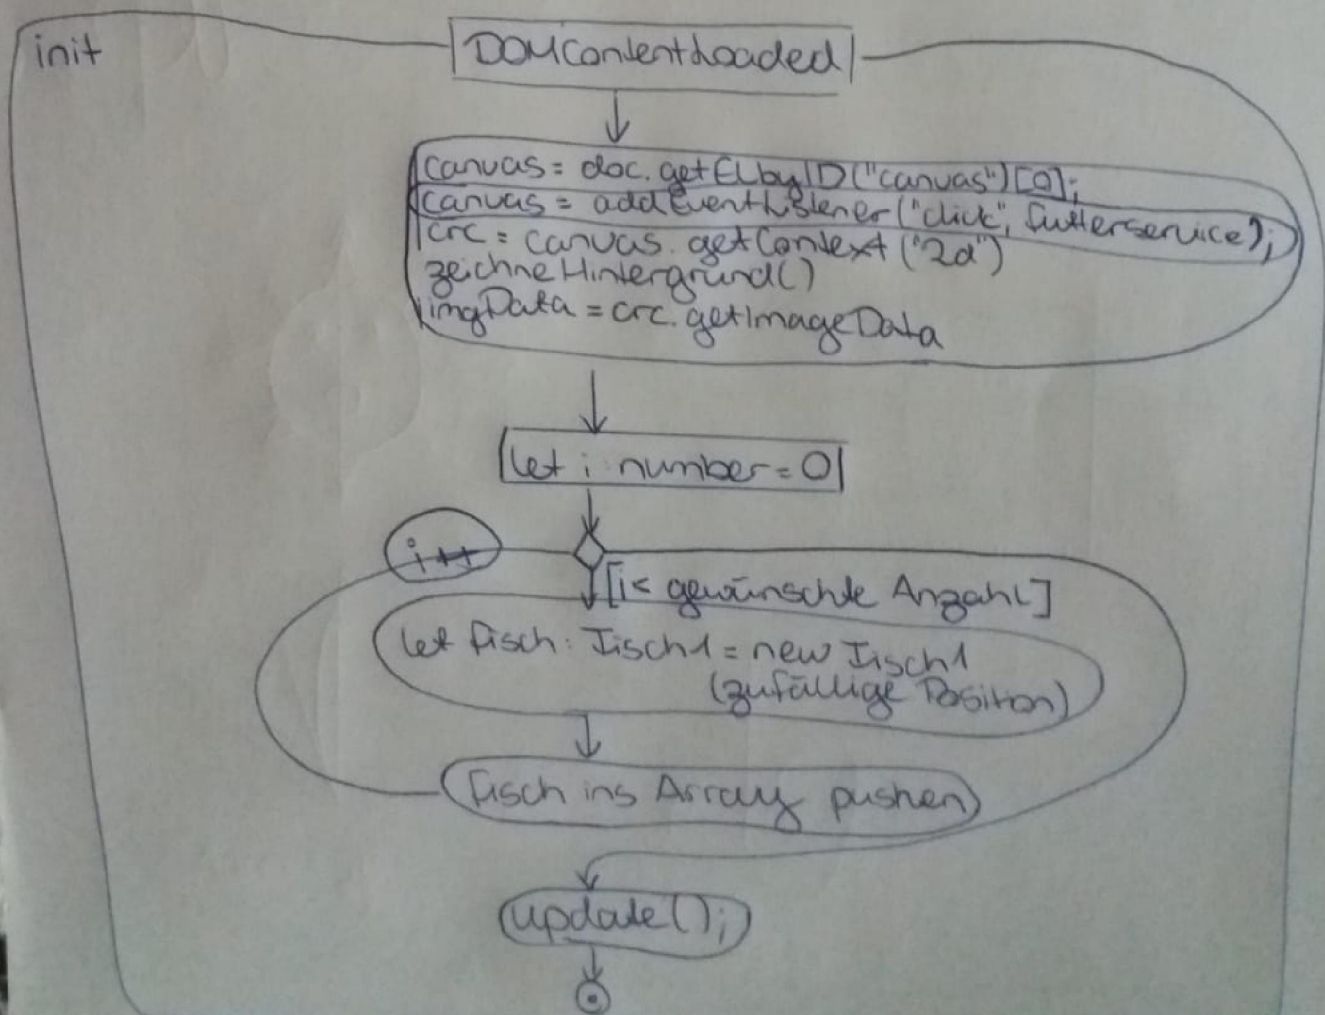 init
DOMContentLoaded
canvas = doc.getElbyID("canvas")[0];
canvas = addEventListener("click", futterservice);
crc = canvas.getContext("2d")
zeichneHintergrund()
imgData = crc.getImageData
let i: number = 0
i++
[i < gewünschte Anzahl]
let fisch: Fisch1 = new Fisch1
(zufällige Position)
Fisch ins Array pushen
update();